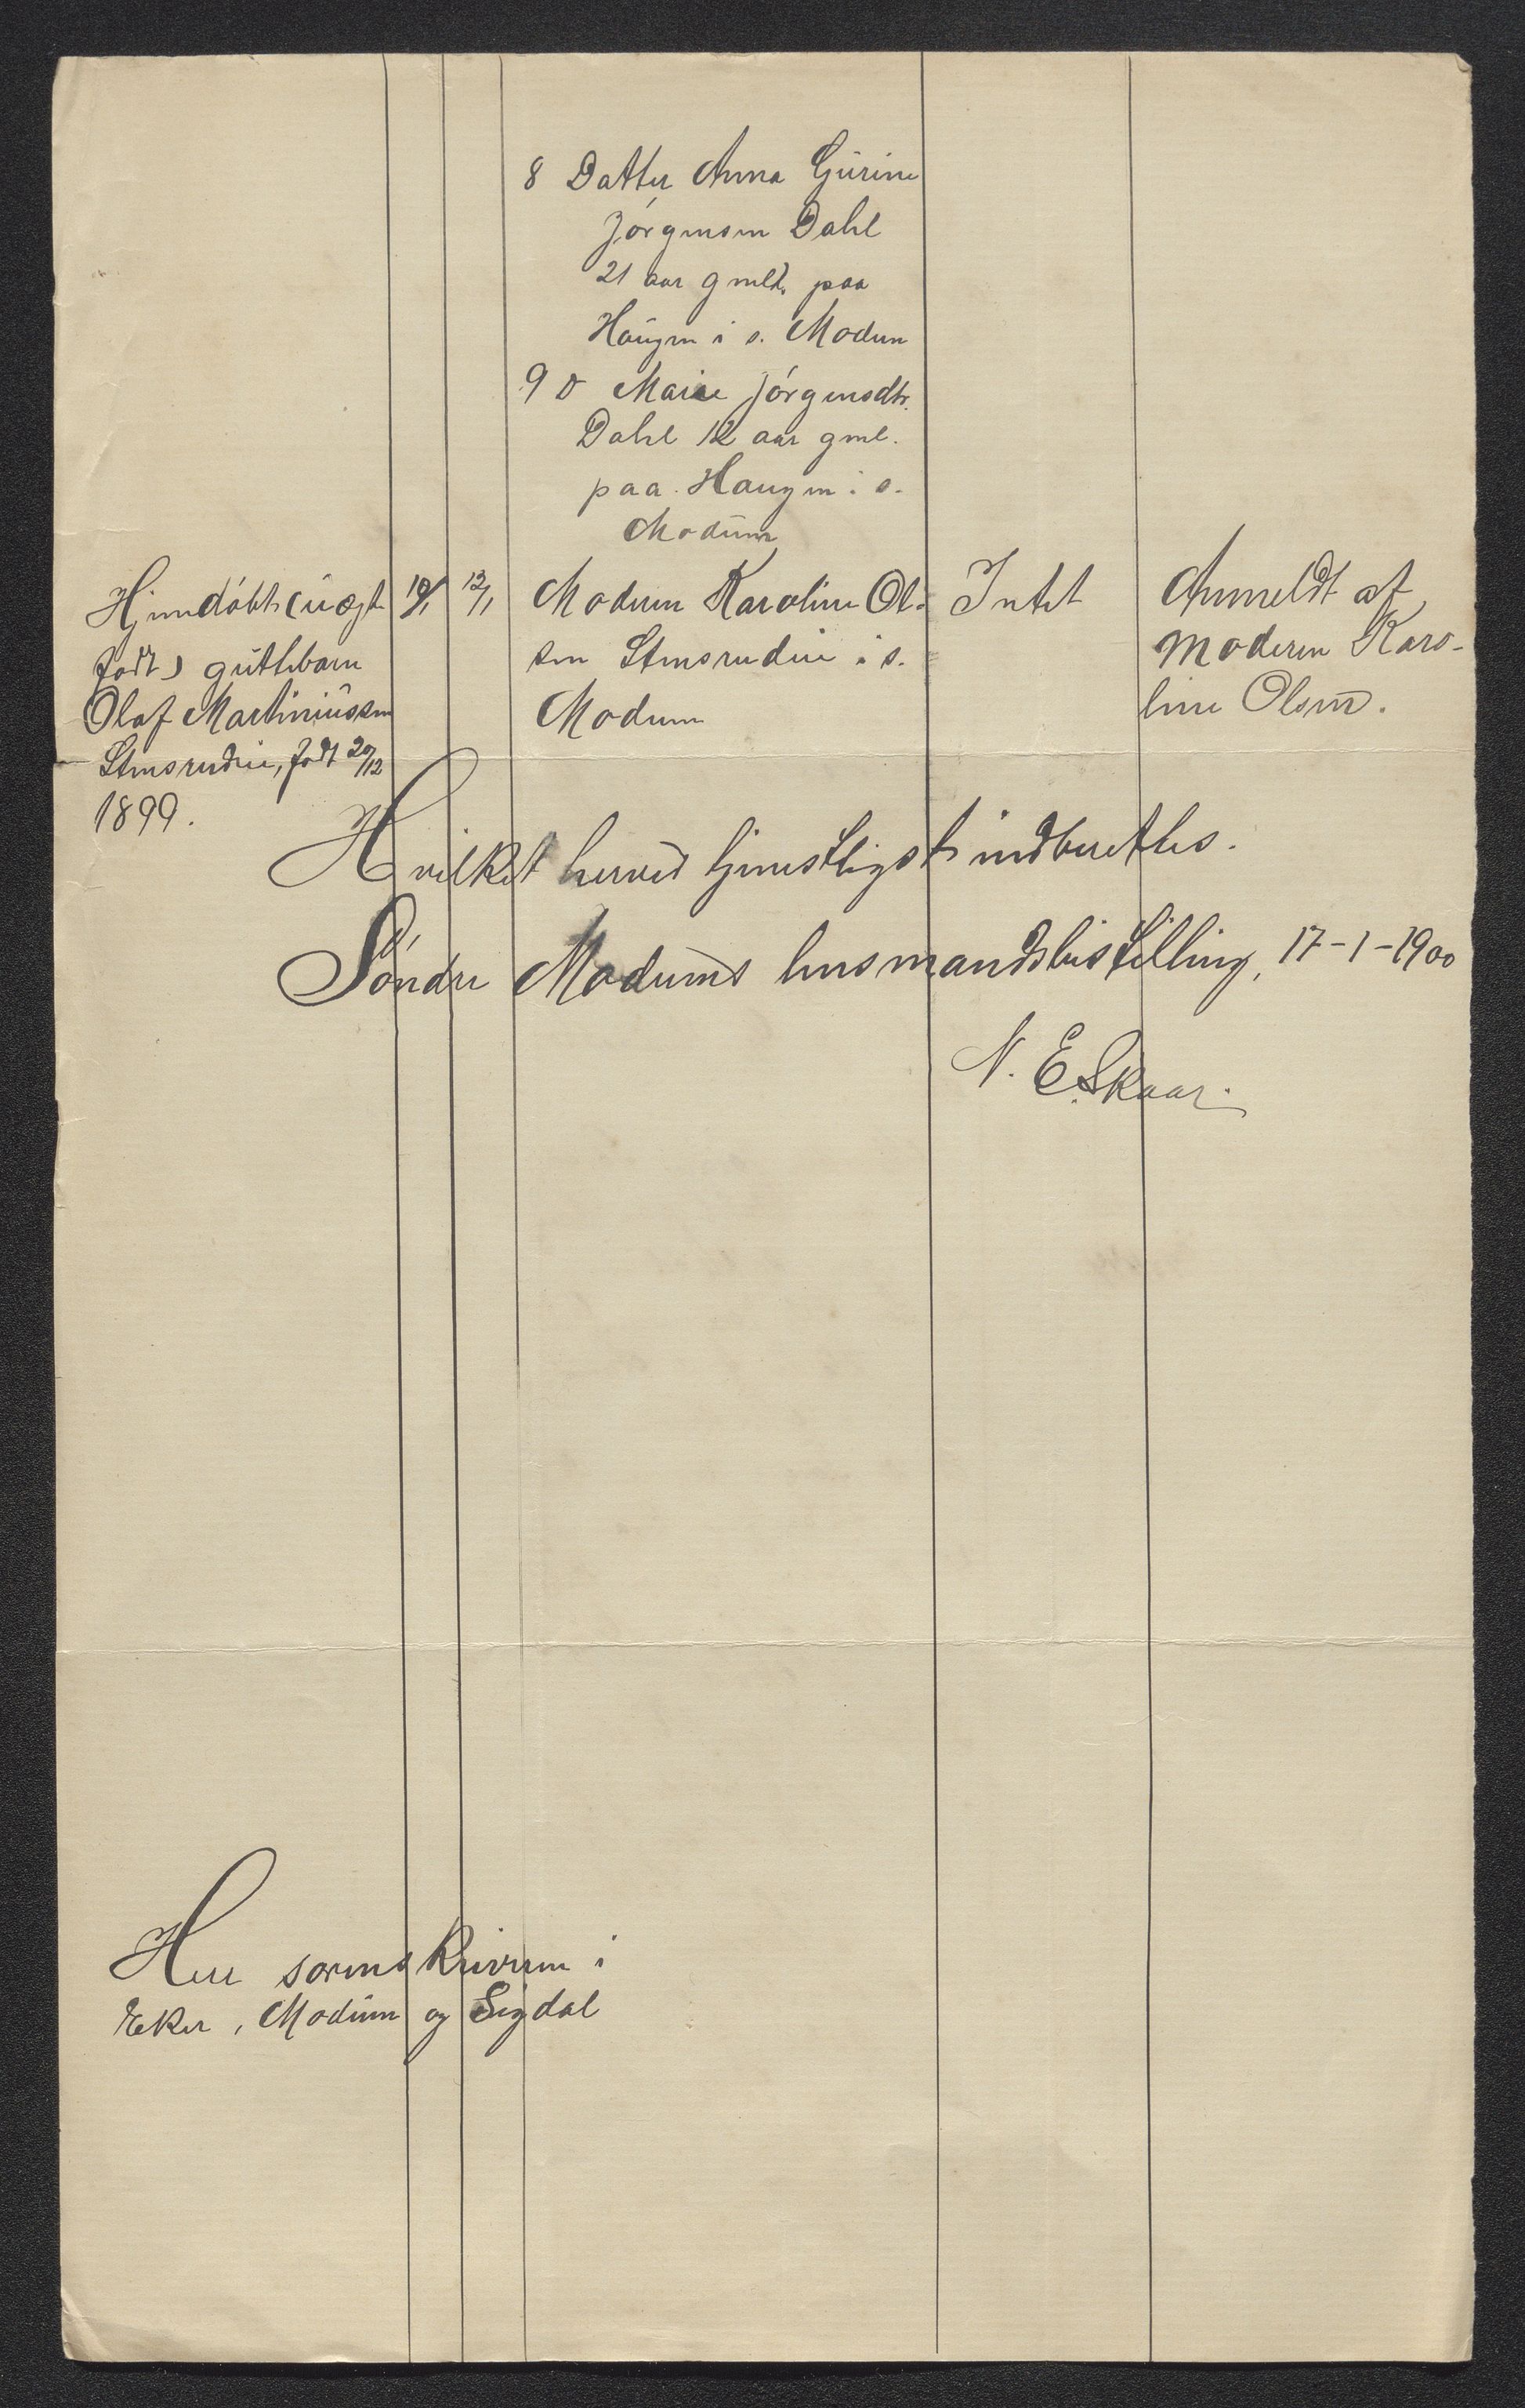 8 Datter Anna Gurine
Jörgensen Dahl
21 aar gmel. paa
Haugen i s. Modum
9 D Marie Jörgensdtr.
Dahl 12 aar gml.
paa Haugen i s.
Modum
Hjemdöbt (uægte
födt) guttebarn
Olaf Martiniussen
Stensrudeie, födt 20/12
1899.
10/1
12/1
Moderen Karoline Ol-
sen Stensrudeie i s.
Modum
Intet
Anmeldt af
Moderen Karo-
line Olsen.
Hvilket herved tjenstligst indberettes.
Söndre Modums lensmandsbestilling, 17-1-1900
N. E. Skaar.
Herr sorenskriveren i
Eker, Modum og Sigdal